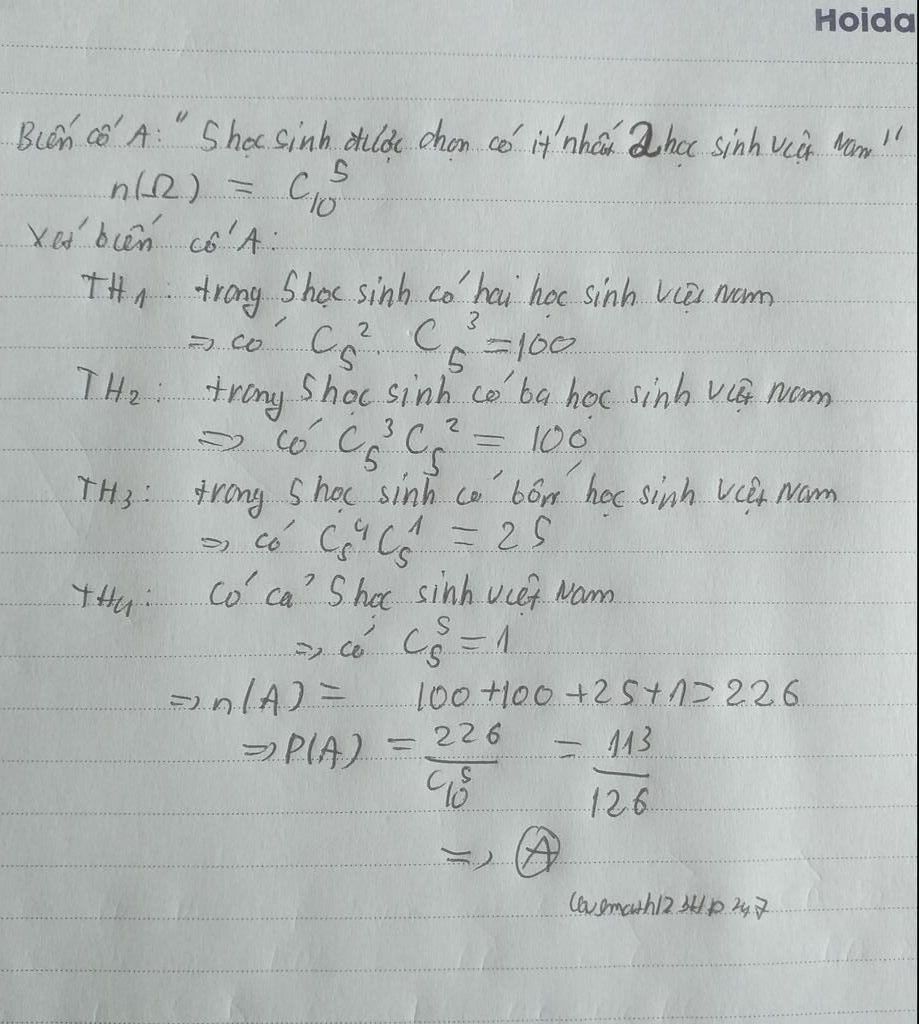 Hoida
Biến cố A: " 5 học sinh được chọn có ít nhất 2 học sinh Việt Nam "
n(Ω) = C₁₀⁵
Xét biến cố A:
TH₁ : trong 5 học sinh có hai học sinh Việt Nam
=> có C₅². C₅³ = 100
TH₂ : trong 5 học sinh có ba học sinh Việt Nam
=> có C₅³ C₅² = 100
TH₃ : trong 5 học sinh có bốn học sinh Việt Nam
=> có C₅⁴ C₅¹ = 25
TH₄ : Có cả 5 học sinh Việt Nam
=> có C₅⁵ = 1
=> n(A) = 100 + 100 + 25 + 1 = 226
=> P(A) = 226/C₁₀⁵ = 113/126
=> A